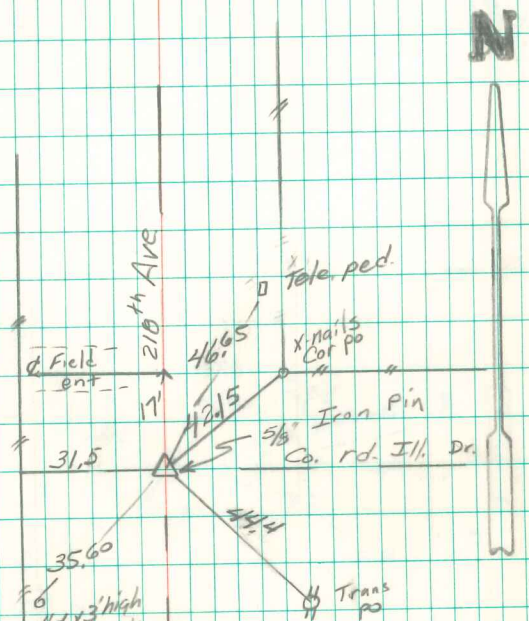 N
218th Ave
Tele. ped.
46.65
X-nails
Cor po
¢ Field
ent
17'
42.15
5/8" Iron Pin
Co. rd. Ill. Dr.
31.5
44.4
35.60
Trans
po
3' high